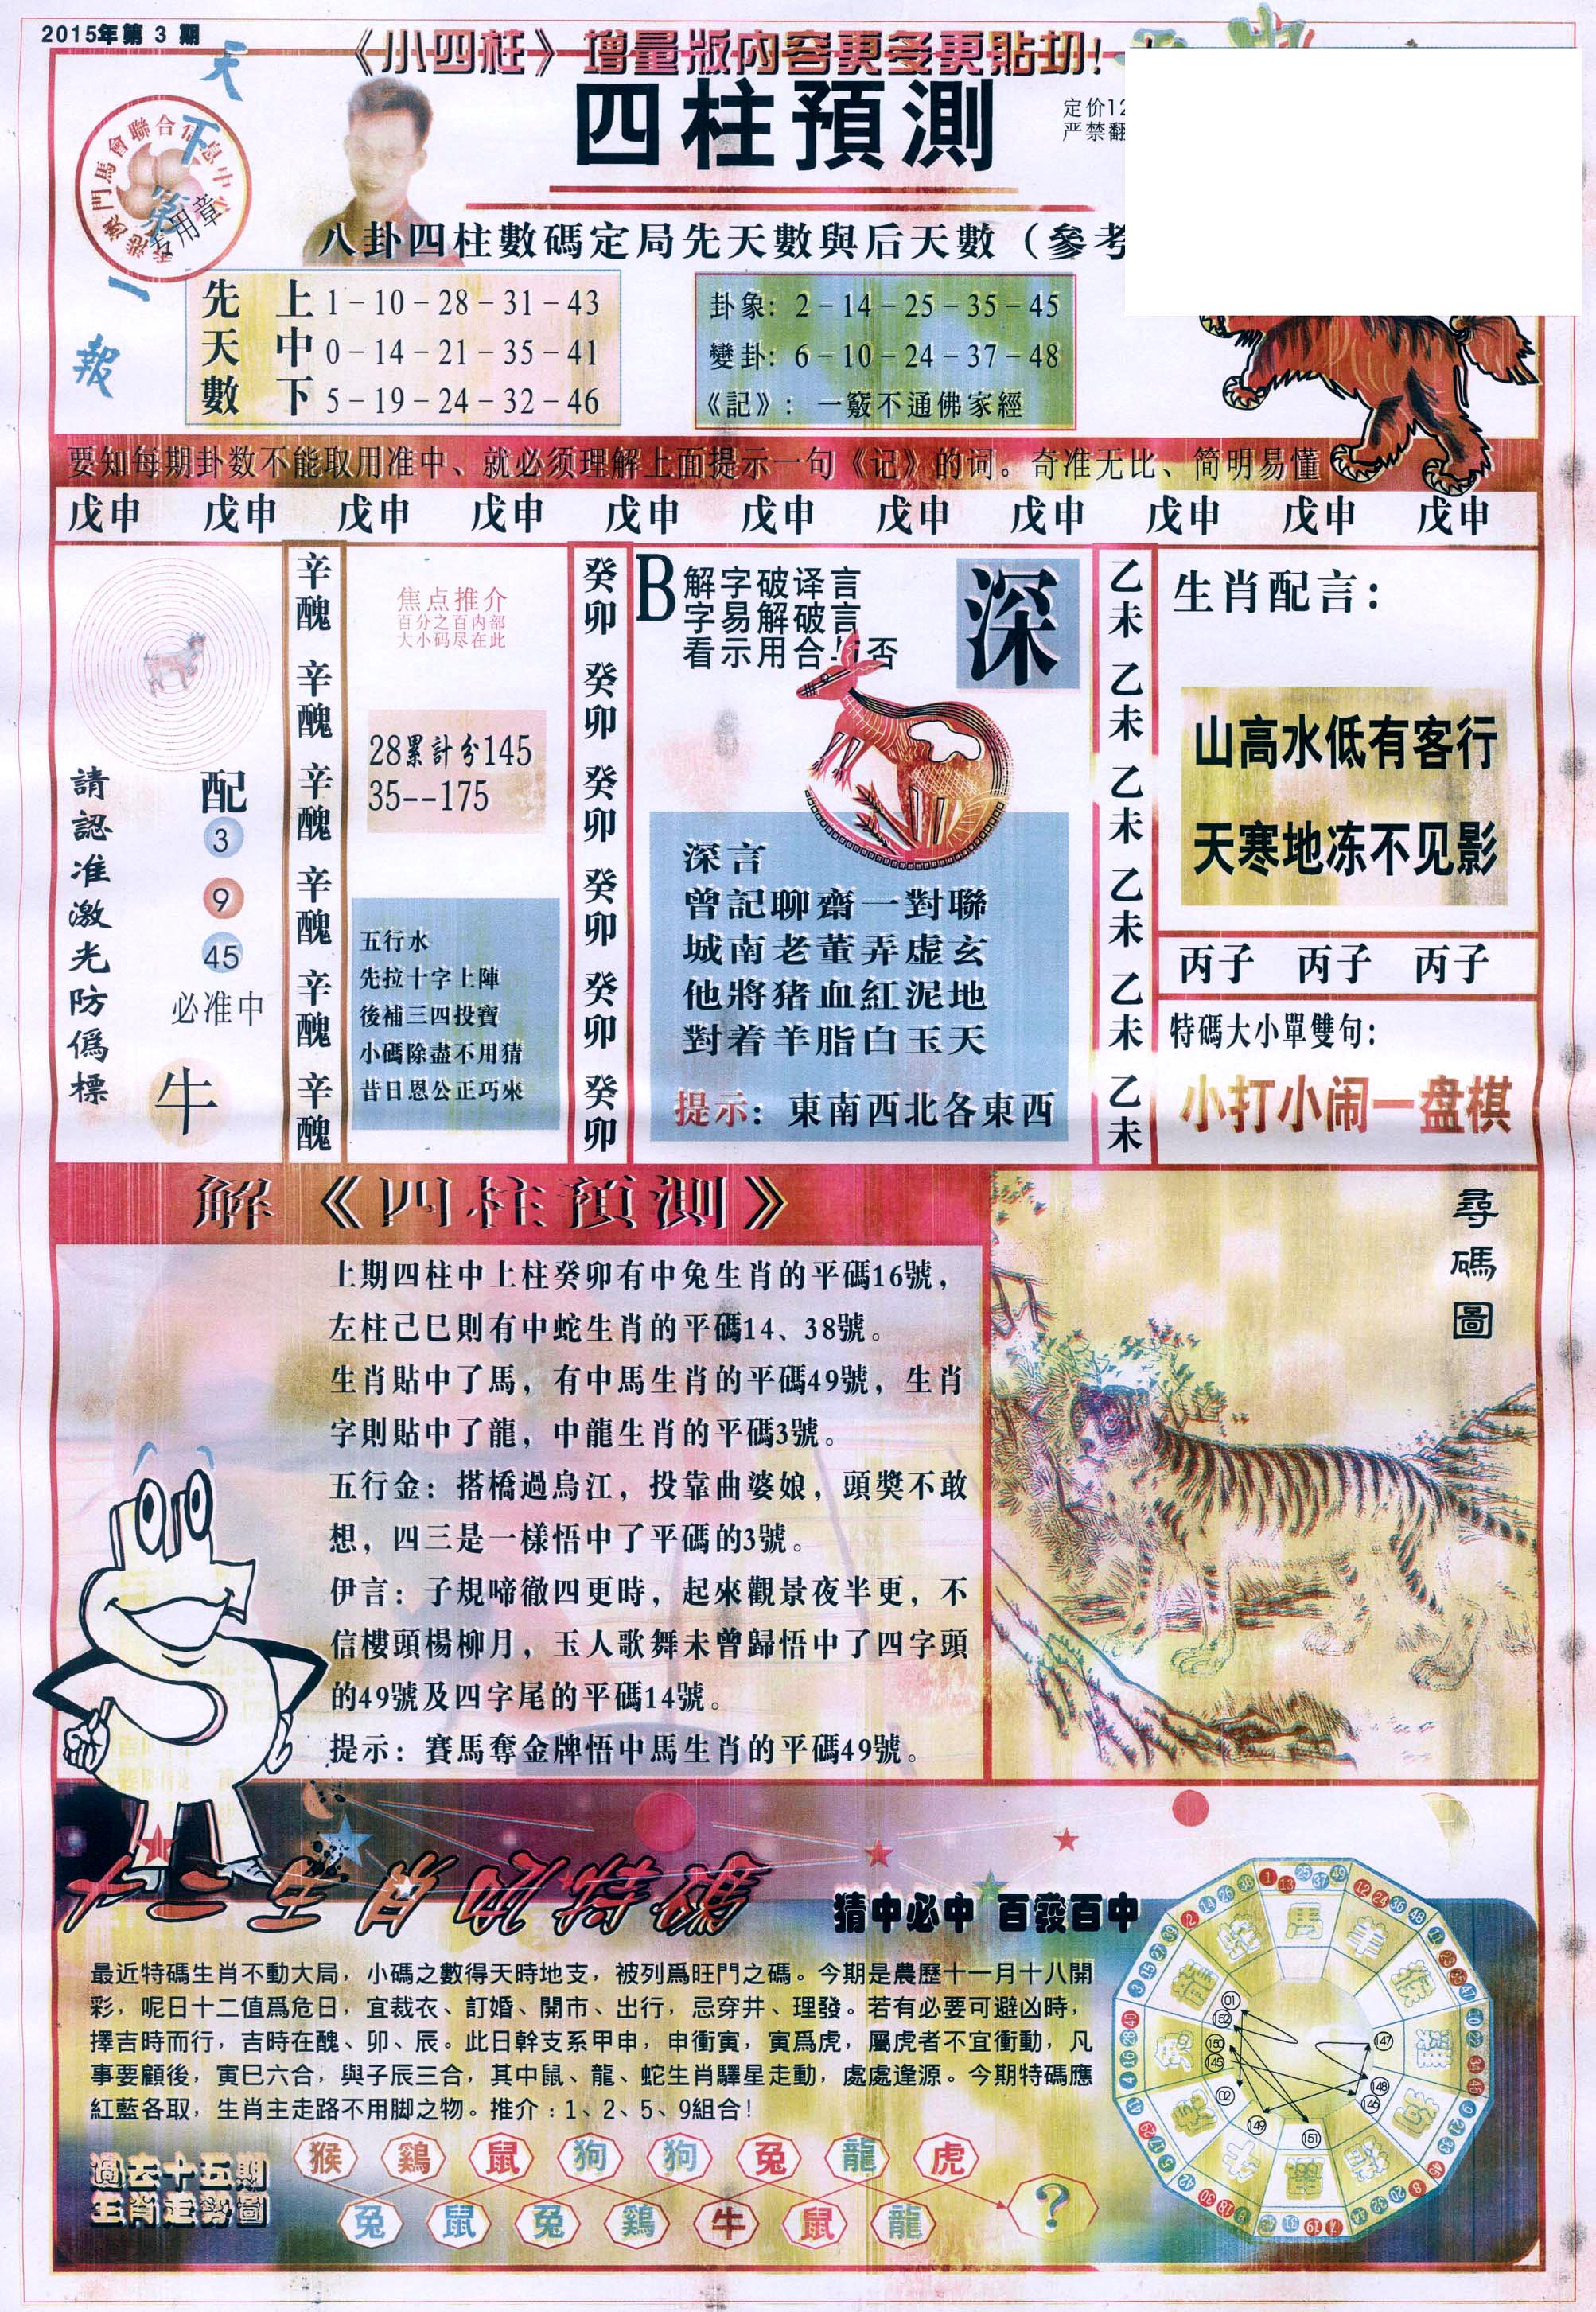 2015年第 3 期
《小四柱》增量版內容更多更貼切!
四柱預測
天下第一報
港澳門馬會聯合信息中心
专用章
定价12
严禁翻
八卦四柱數碼定局先天數與后天數（參考
先天數
上 1－10－28－31－43
中 0－14－21－35－41
下 5－19－24－32－46
卦象: 2－14－25－35－45
變卦: 6－10－24－37－48
《記》: 一竅不通佛家經
要知每期卦数不能取用准中、就必须理解上面提示一句《记》的词。奇准无比、简明易懂
戊申 戊申 戊申 戊申 戊申 戊申 戊申 戊申 戊申 戊申 戊申
請認准激光防僞標
配
3
9
45
必准中
牛
辛醜 辛醜 辛醜 辛醜 辛醜 辛醜
焦点推介
百分之百内部
大小码尽在此
28累計分145
35--175
五行水
先拉十字上陣
後補三四投寶
小碼除盡不用猜
昔日恩公正巧來
癸卯 癸卯 癸卯 癸卯 癸卯 癸卯
B
解字破译言
字易解破言
看示用合与否
深
深言
曾記聊齋一對聯
城南老董弄虚玄
他將猪血紅泥地
對着羊脂白玉天
提示: 東南西北各東西
乙未 乙未 乙未 乙未 乙未 乙未
生肖配言:
山高水低有客行
天寒地冻不见影
丙子 丙子 丙子
特碼大小單雙句:
小打小闹一盘棋
解《四柱預測》
上期四柱中上柱癸卯有中兔生肖的平碼16號，
左柱己巳則有中蛇生肖的平碼14、38號。
生肖貼中了馬，有中馬生肖的平碼49號，生肖
字則貼中了龍，中龍生肖的平碼3號。
五行金: 搭橋過烏江，投靠曲婆娘，頭獎不敢
想，四三是一樣悟中了平碼的3號。
伊言: 子規啼徹四更時，起來觀景夜半更，不
信樓頭楊柳月，玉人歌舞未曾歸悟中了四字頭
的49號及四字尾的平碼14號。
提示: 賽馬奪金牌悟中馬生肖的平碼49號。
尋碼圖
十二生肖說特碼
猜中必中 百發百中
最近特碼生肖不動大局，小碼之數得天時地支，被列爲旺門之碼。今期是農歷十一月十八開
彩，呢日十二值爲危日，宜裁衣、訂婚、開市、出行，忌穿井、理發。若有必要可避凶時，
擇吉時而行，吉時在醜、卯、辰。此日幹支系甲申，申衝寅，寅爲虎，屬虎者不宜衝動，凡
事要顧後，寅巳六合，與子辰三合，其中鼠、龍、蛇生肖驛星走動，處處逢源。今期特碼應
紅藍各取，生肖主走路不用脚之物。推介:1、2、5、9組合!
過去十五期
生肖走勢圖
猴 鷄 鼠 狗 狗 兔 龍 虎
兔 鼠 兔 鷄 牛 鼠 龍 ?
馬 羊
01
152
150
145
02
149
151
146
148
147